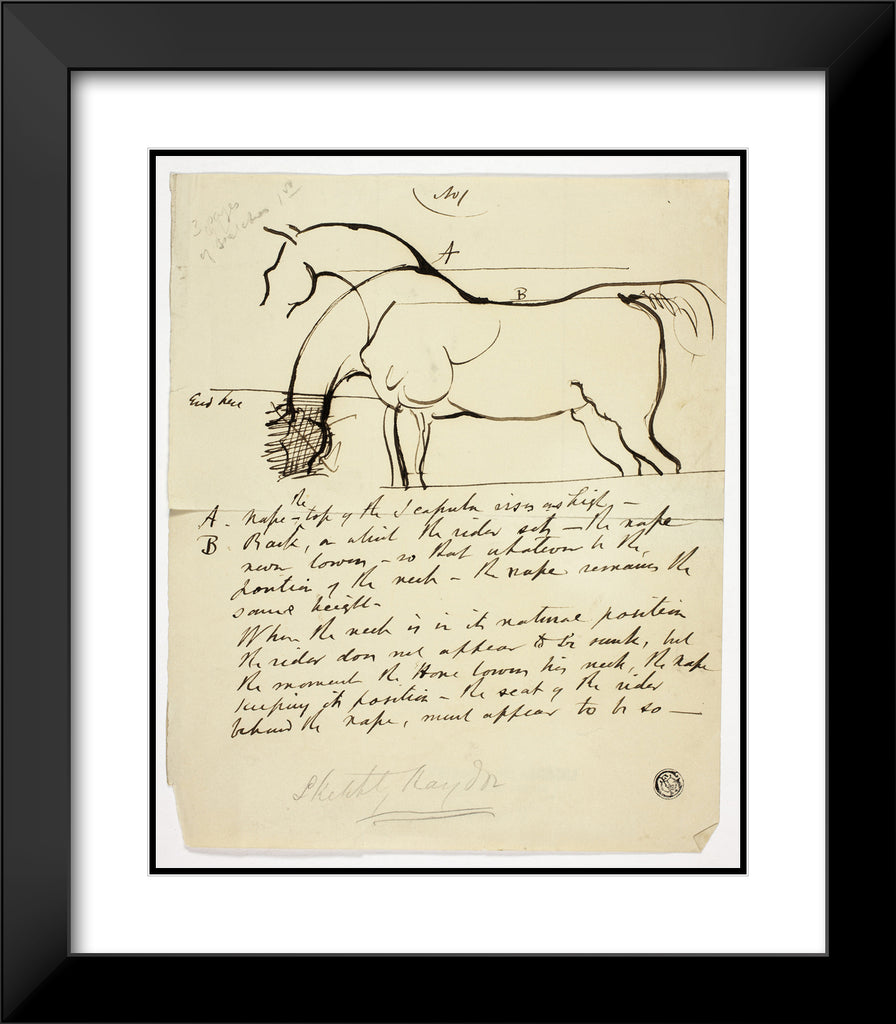 3 pages
of sketches 1 sh
No 1
A
B
End here
the
A. Nape - top of the Scapula rises as high -
B. Back, on which the rider sits - the nape
never lowers - so that whatever be the
position of the neck - the nape remains the
same height -
When the neck is in its natural position
the rider does not appear to be sunk, but
the moment the Horse lowers his neck, the nape
keeping its position - the seat of the rider
behind the nape, must appear to be so -
Sketch by Haydon